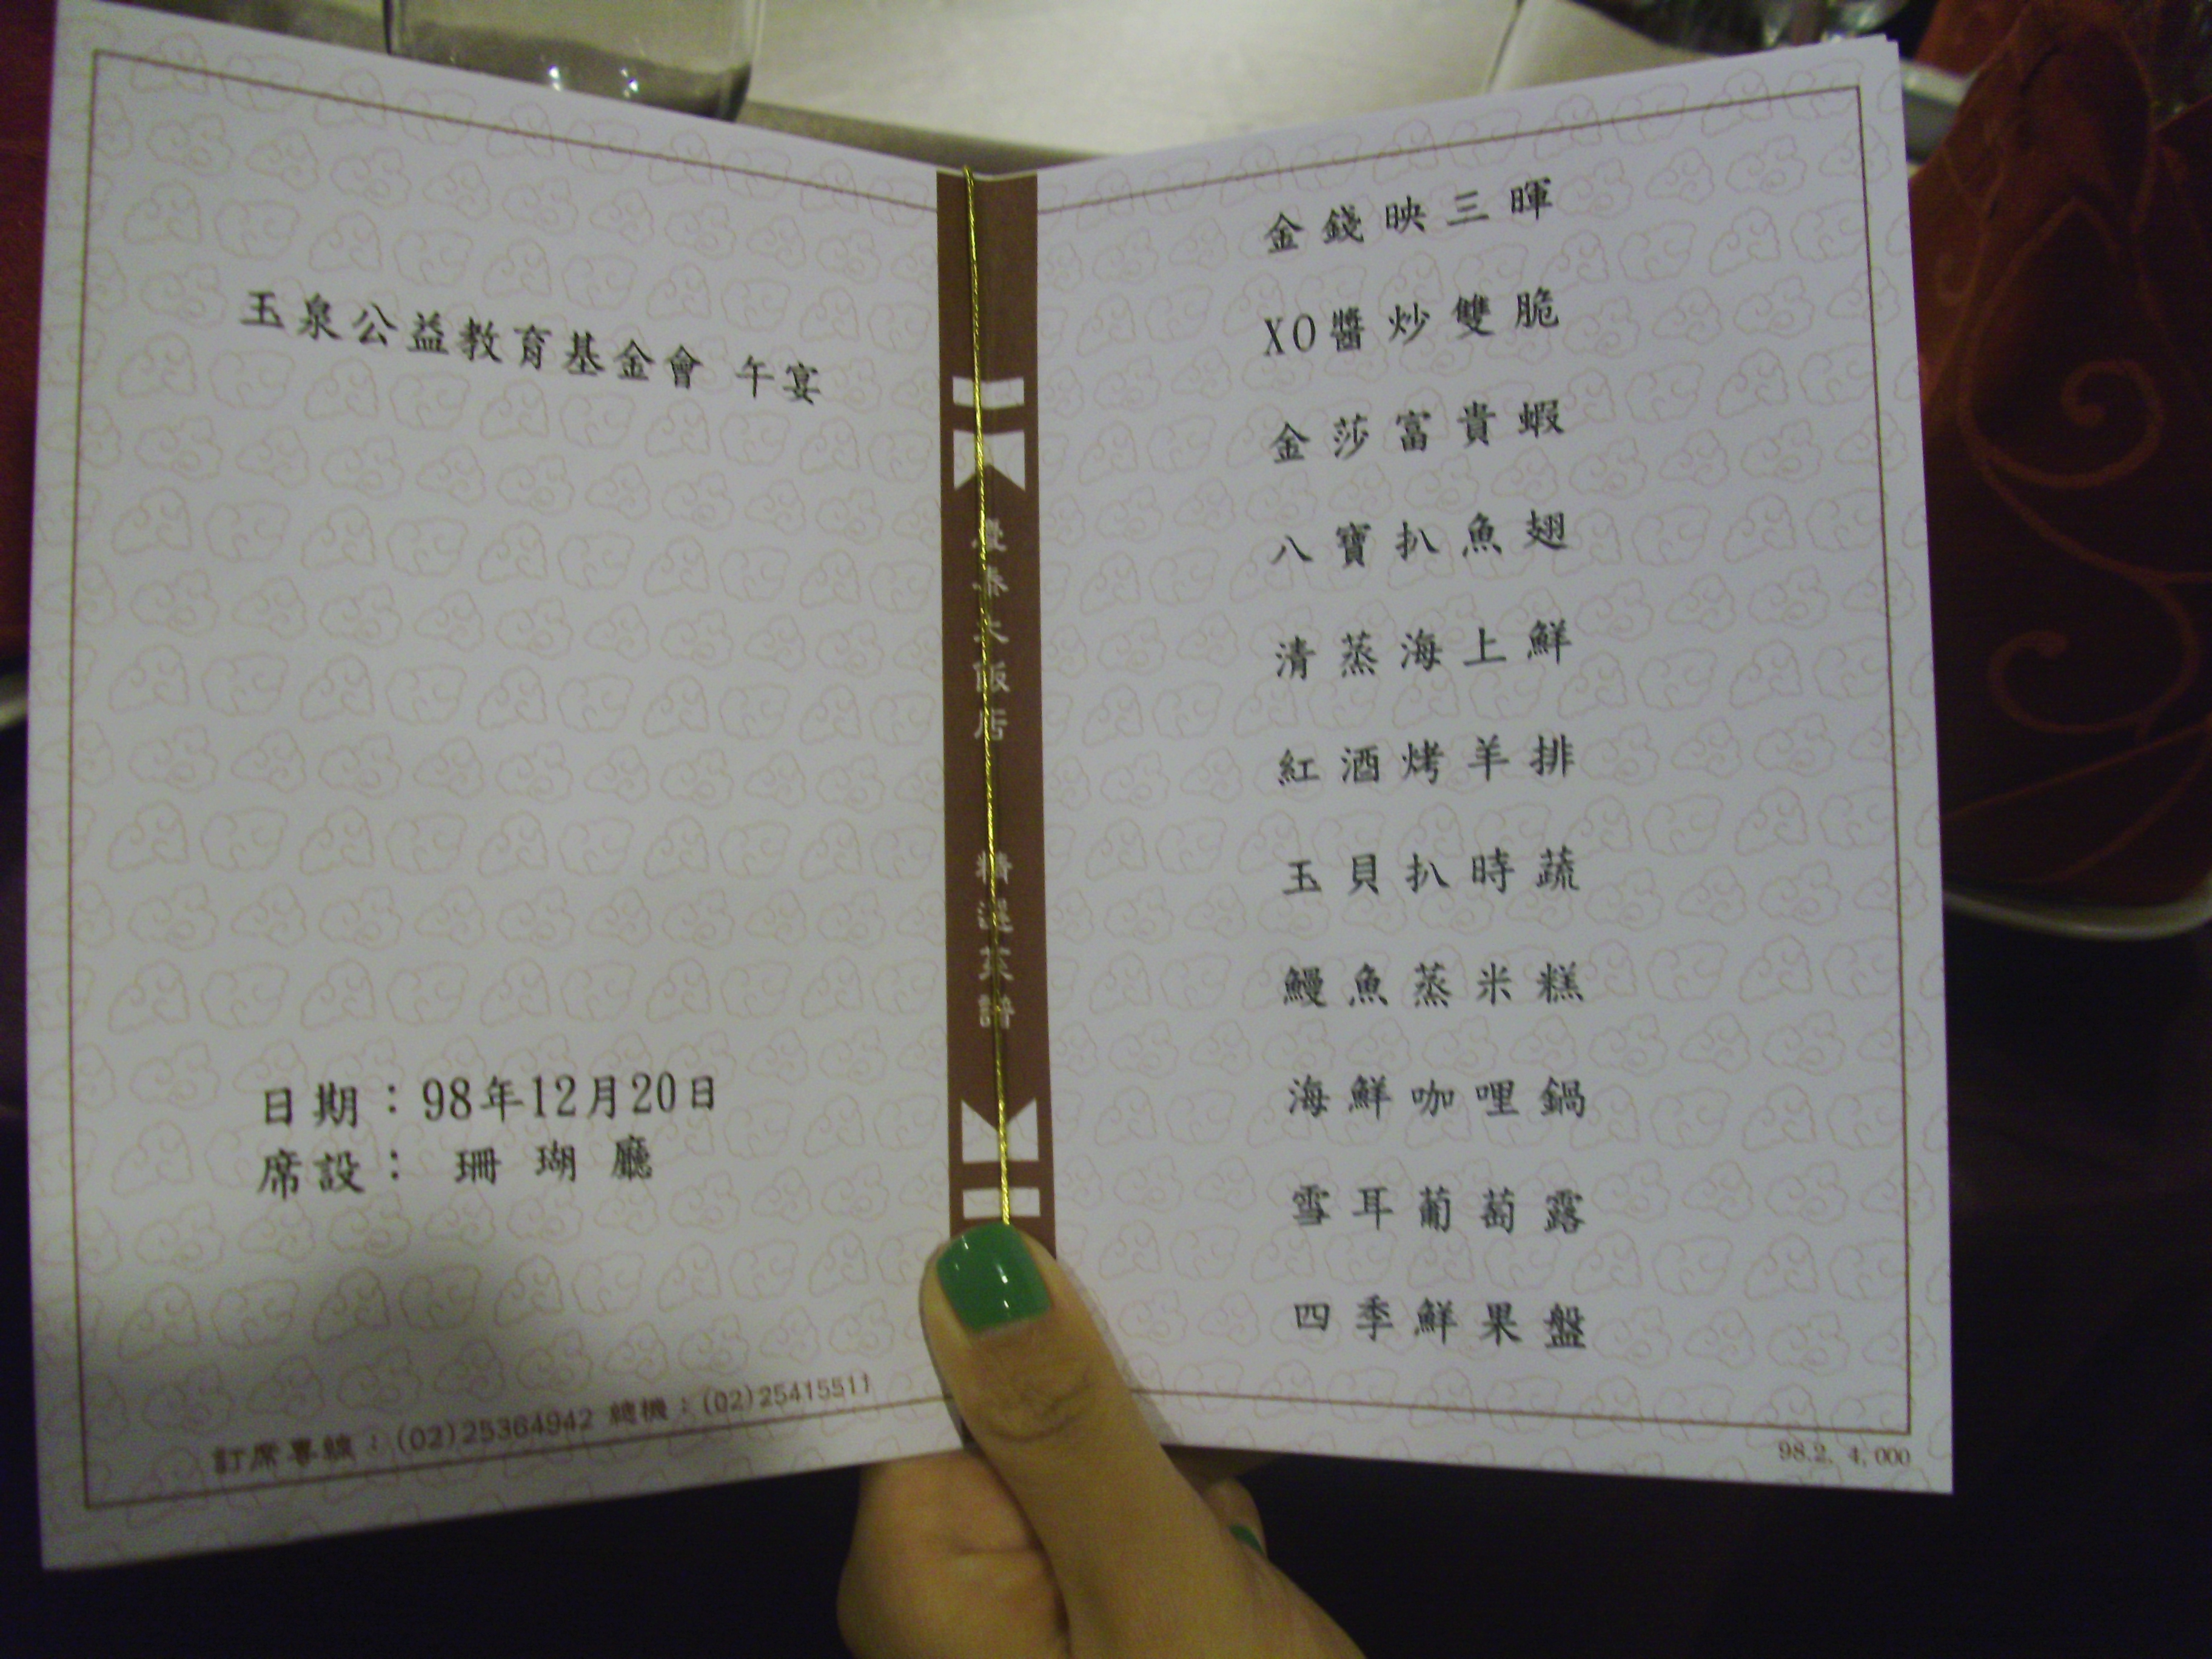 玉泉公益教育基金會 午宴
日期：98年12月20日
席設： 珊瑚廳
訂席專線：(02)25364942 總機：(02)25415511
豊泰大飯店 精選菜譜
金錢映三暉
XO醬炒雙脆
金莎富貴蝦
八寶扒魚翅
清蒸海上鮮
紅酒烤羊排
玉貝扒時蔬
鰻魚蒸米糕
海鮮咖哩鍋
雪耳葡萄露
四季鮮果盤
98.2. 4,000